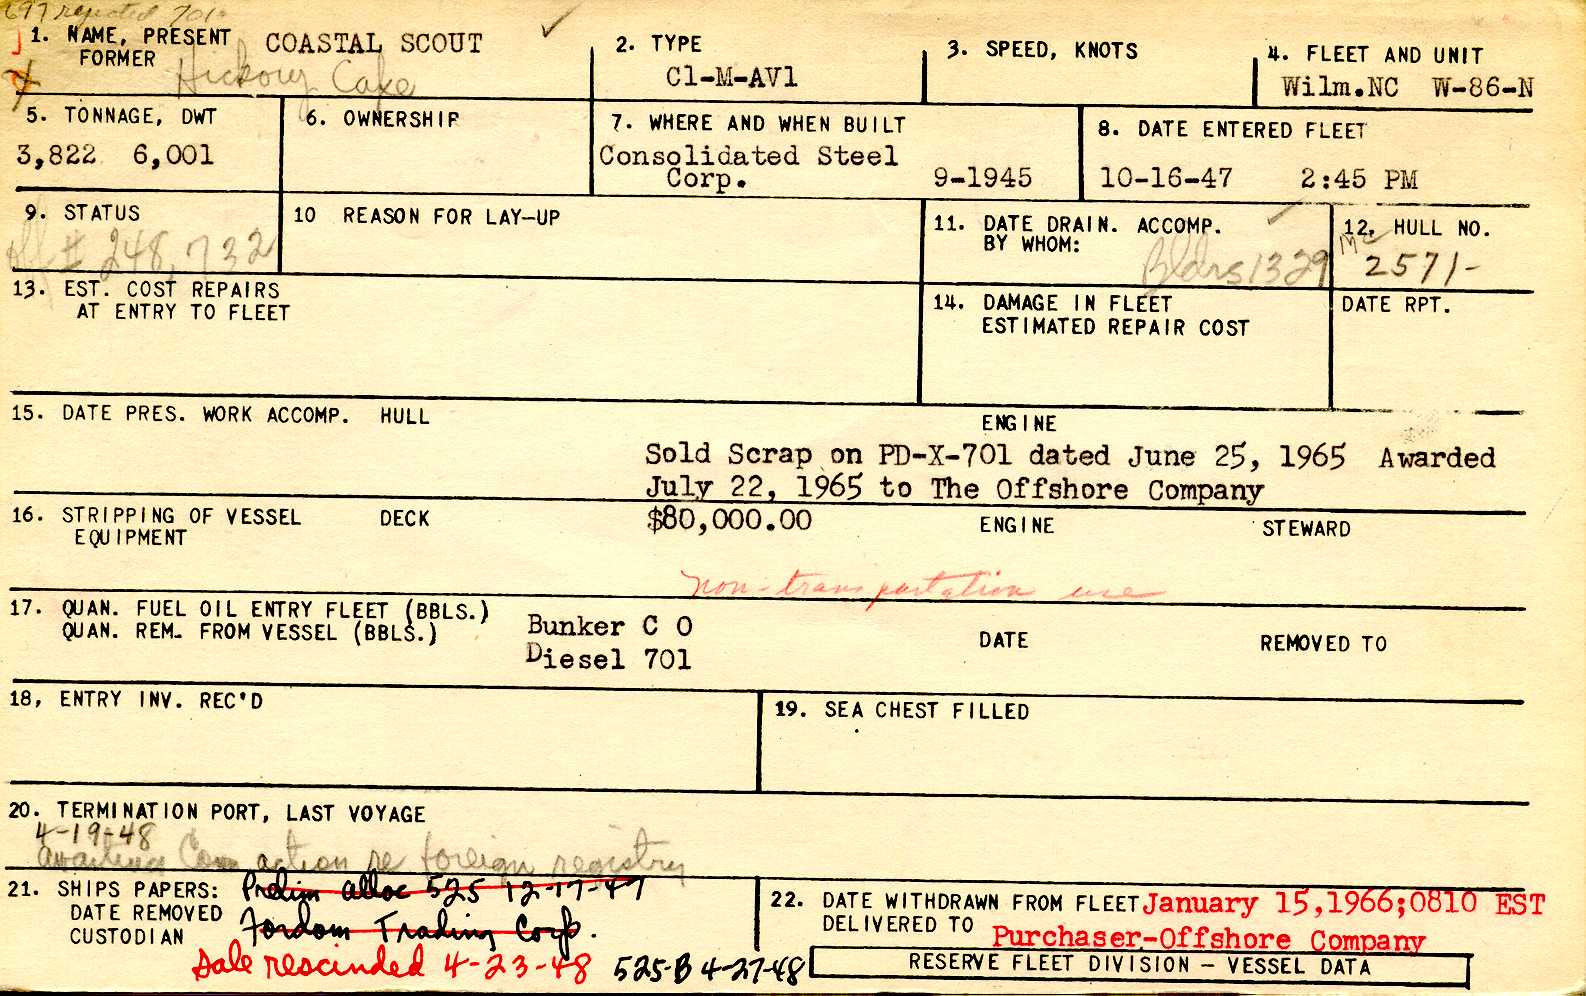 697 rejected 701
1. NAME, PRESENT COASTAL SCOUT
FORMER Hickory Cape
2. TYPE
C1-M-AV1
3. SPEED, KNOTS
4. FLEET AND UNIT
Wilm.NC W-86-N
5. TONNAGE, DWT
3,822 6,001
6. OWNERSHIP
7. WHERE AND WHEN BUILT
Consolidated Steel
Corp. 9-1945
8. DATE ENTERED FLEET
10-16-47 2:45 PM
9. STATUS
Off # 248,732
10 REASON FOR LAY-UP
11. DATE DRAIN. ACCOMP.
BY WHOM:
Bldrs 1329
12. HULL NO.
MC 2571-
13. EST. COST REPAIRS
AT ENTRY TO FLEET
14. DAMAGE IN FLEET
ESTIMATED REPAIR COST
DATE RPT.
15. DATE PRES. WORK ACCOMP. HULL ENGINE
Sold Scrap on PD-X-701 dated June 25, 1965 Awarded
July 22, 1965 to The Offshore Company
16. STRIPPING OF VESSEL DECK $80,000.00 ENGINE STEWARD
EQUIPMENT
non-transportation use
17. QUAN. FUEL OIL ENTRY FLEET (BBLS.) Bunker C 0
QUAN. REM. FROM VESSEL (BBLS.) DATE REMOVED TO
Diesel 701
18, ENTRY INV. REC'D
19. SEA CHEST FILLED
20. TERMINATION PORT, LAST VOYAGE
4-19-48
Awaiting Com action re foreign registry
21. SHIPS PAPERS: Prelim alloc 525 12-17-47
DATE REMOVED
CUSTODIAN Fordom Trading Corp.
Sale rescinded 4-23-48 525-B 4-27-48
22. DATE WITHDRAWN FROM FLEET January 15,1966;0810 EST
DELIVERED TO Purchaser-Offshore Company
RESERVE FLEET DIVISION - VESSEL DATA